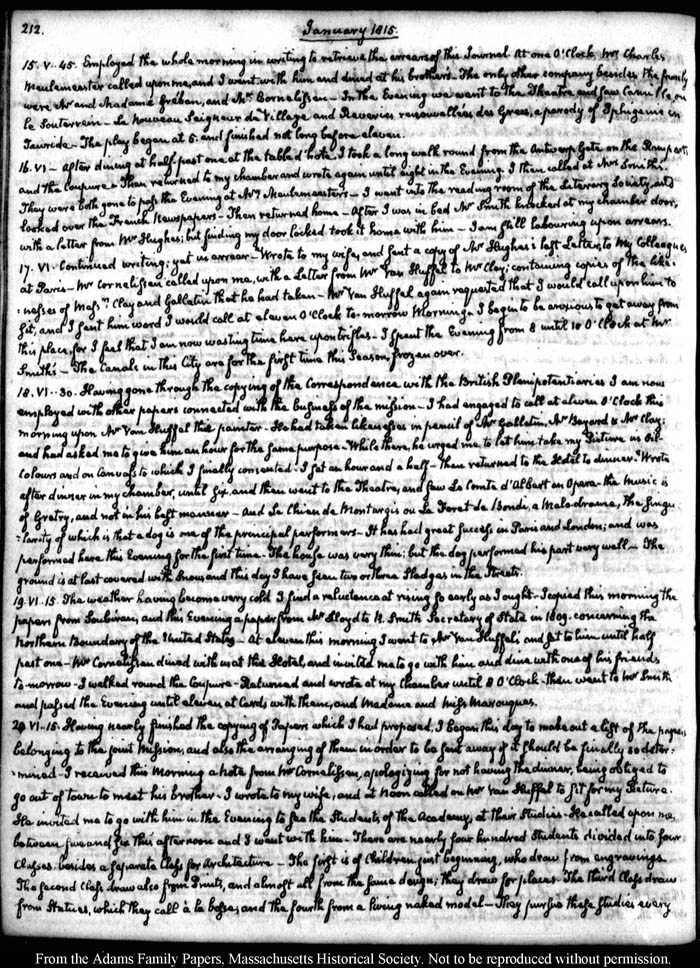 212.
January 1815.
15. V. 45. Employed the whole morning in writing to retrieve the arrears of this Journal. At one O'Clock, Mr Charles
Meulemeester called upon me, and I went with him and dined at his brother's. The only other company besides the family
were Mr and Madame Greban, and Mr Cornelissen — In the Evening we went to the Theatre and saw Camille, ou
le Souterrein — Le Nouveau Seigneur du Village and Reveries renouvellées des Grecs, a parody of Iphigenia in
Tauride — The play began at 5. and finished not long before eleven.
16. VI — After dining at half past one at the table d'hote, I took a long walk round from the Antwerp Gate on the Ramparts
and the Coupure. Then returned to my chamber and wrote again until eight in the Evening. I then called at Mr Smith's
They were both gone to pass the Evening at Mr Meulemeester's — I went into the reading room of the Literary Society, and
looked over the French Newspapers — Then returned home — After I was in bed Mr Smith knocked at my chamber door,
with a letter from Mr Hughes; but finding my door locked took it home with him — I am still labouring upon arrears.
17. VI. Continued writing; yet in arrear — Wrote to my wife, and sent a copy of Mr Hughes's last Letter, to My Colleagues
at Paris — Mr Cornelissen called upon me, with a Letter from Mr Van Huffel to Mr Clay; containing copies of the like-
:nesses of Messrs Clay and Gallatin that he had taken — Mr Van Huffel again requested that I would call upon him to
sit, and I sent him word I would call at eleven O'Clock to-morrow Morning — I begin to be anxious to get away from
this place, for I feel that I am now wasting time here upon trifles — I spent the Evening from 8 until 10 O'Clock at Mr
Smith's — The Canals in this City are for the first time this Season, frozen over.
18. VI. 30. Having gone through the copying of the Correspondence with the British Plenipotentiaries I am now
employed with other papers connected with the business of the mission — I had engaged to call at eleven O'Clock this
morning upon Mr Van Huffel the painter — He had taken likenesses in pencil of Mr Gallatin, Mr Bayard & Mr Clay;
and had asked me to give him an hour for the same purpose — While there, he urged me to let him take my Picture in Oil-
Colours and on Canvas, to which I finally consented — I sat an hour and a half — then returned to the Hotel to dinner. Wrote
after dinner in my chamber, until six, and then went to the Theatre, and saw Le Comte d'Albert an Opera — the Music is
of Gretry, and not in his best manner — And Le Chien de Montargis ou La Foret de Bondi, a Melo-drama, the singu-
:larity of which is that a dog is one of the principal performers — It has had great success in Paris and London; and was
performed here this Evening for the first time — The house was very thin; but the dog performed his part very well — The
ground is at last covered with Snow and this day I have seen two or three Sledges in the Streets.
19. VI. 15. The weather having become very cold I find a reluctance at rising so early as I ought — I copied this morning the
papers from Soubiran, and this Evening a paper from Mr Lloyd to R. Smith Secretary of State in 1809. concerning the
Northern Boundary of the United States — At eleven this morning I went to Mr Van Huffel's, and sat to him until half
past one — Mr Cornelissen dined with us at the Hotel, and invited me to go with him and dine with one of his friends
to-morrow — I walked round the Coupure — Returned and wrote at my Chamber until 8 O'Clock — then went to Mr Smith
and passed the Evening until eleven at Cards with them, and Madame and Miss Marougues.
20 VI. 15. Having nearly finished the copying of Papers which I had proposed, I began this day to make out a list of the papers
belonging to the joint Mission, and also the arranging of them in order to be sent away if it should be finally so deter-
:mined — I received this Morning a Note from Mr Cornelissen, apologizing for not having the dinner, being obliged to
go out of town to meet his brother — I wrote to my wife, and at Noon called on Mr Van Huffel to sit for my Picture.
He invited me to go with him in the Evening to see the Students of the Academy, at their Studies — He called upon me,
between five and six this afternoon and I went with him — There are nearly four hundred Students divided into four
Classes. besides a separate Class for Architecture — The first is of Children just beginning, who draw from engravings.
The second Class, draw also from Prints, and almost all from the same design; they draw for places. The third Class draw
from Statues, which they call à la bosse; and the fourth from a living naked model — They pursue these studies every
From the Adams Family Papers, Massachusetts Historical Society. Not to be reproduced without permission.